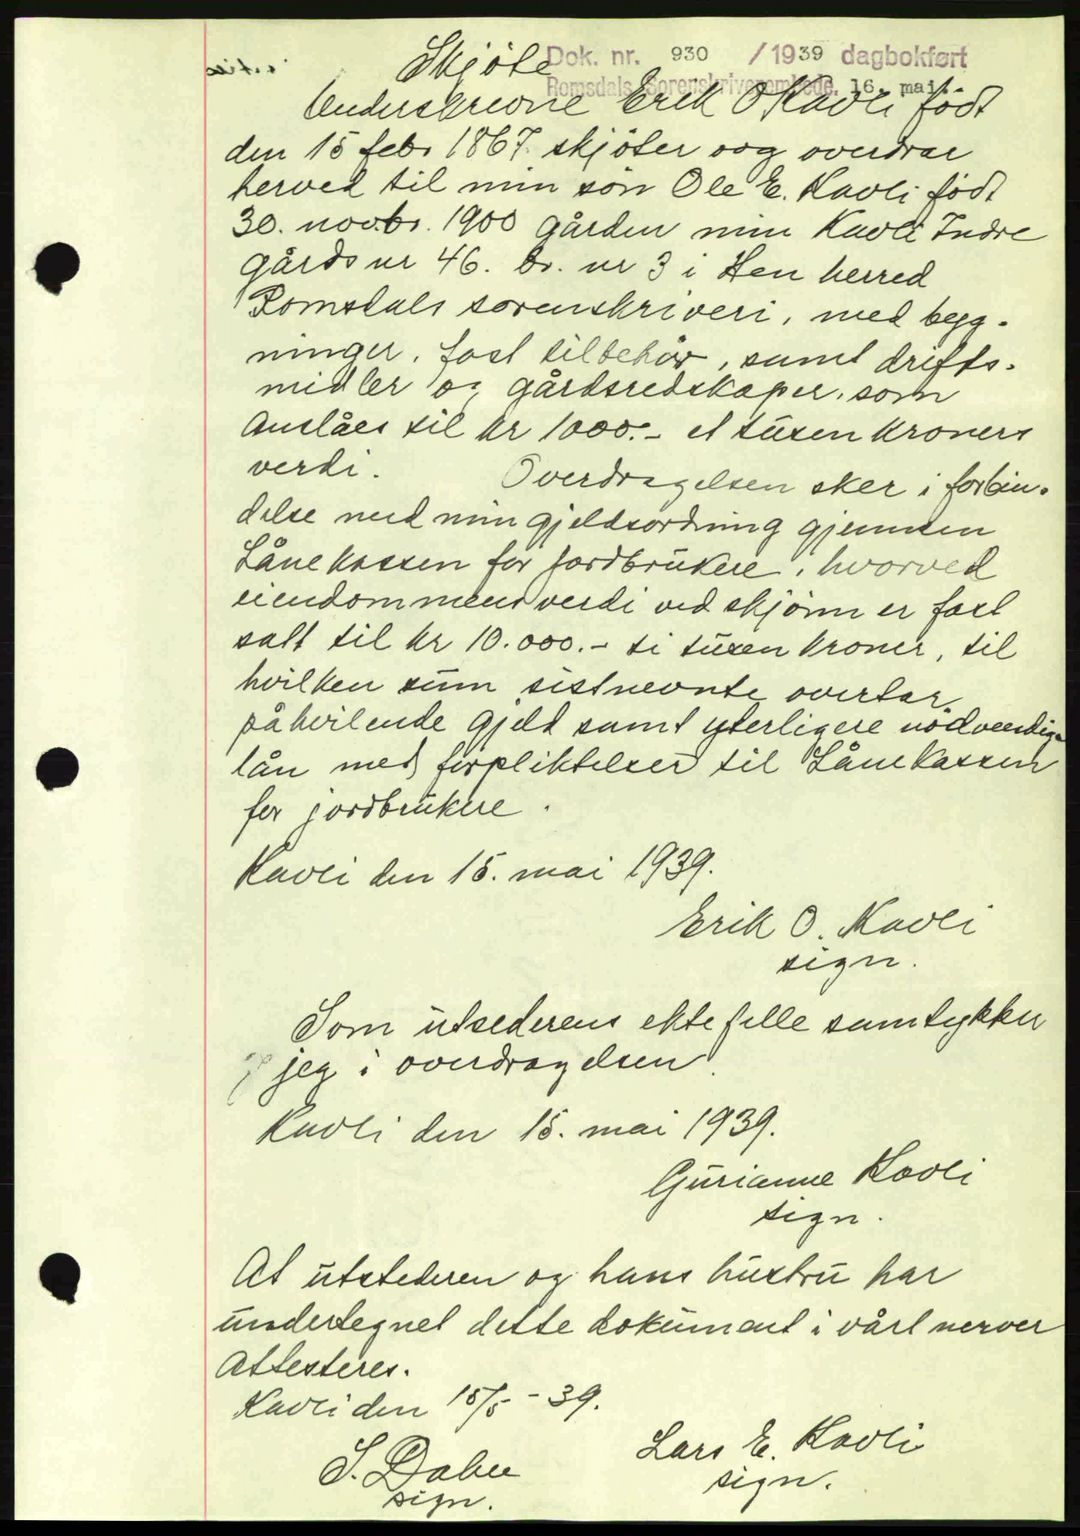 Skjöte
Dok. nr. 930 /1939 dagbokført
Romsdals Sorenskriverembede, 16. mai
Underskrevne Erik O Kavli født
den 15 febr 1867. skjöter oog overdrar
herved til min sön Ole E. Kavli født
30. novbr. 1900 gården min Kavli Indre
gårds nr 46. br. nr 3 i Hen herred
Romsdals sorenskriveri, med bygg-
ninger, fast tilbehör, samt drifts-
midler og gårdsredskaper, som
Anslåes til kr 1000.- et tusen kroners
verdi. Overdragelsen sker i forbin-
delse med min gjeldsordning gjennem
Lånekassen for Jordbrukere, hvorved
eiendommens verdi ved skjönn er fast
satt til kr 10.000.- ti tusen kroner, til
hvilken sum sistnevnte overtar
påhvilende gjeld samt yterligere nödvendig-
lån med forpliktelser til Lånekassen
for jordbrukere.
Kavli den 15. mai 1939.
Erik O. Kavli
sign.
Som utsederens ektefelle samtykker
jeg i overdragelsen.
Kavli den 15. mai 1939.
Gurianne Kavli
sign.
At utstederen og hans hustru har
undertegnet dette dokument i vårt nerver
Attesteres.
Kavli den 15/5 - 39.
S. Dahle Lars E. Kavli
sign. sign.